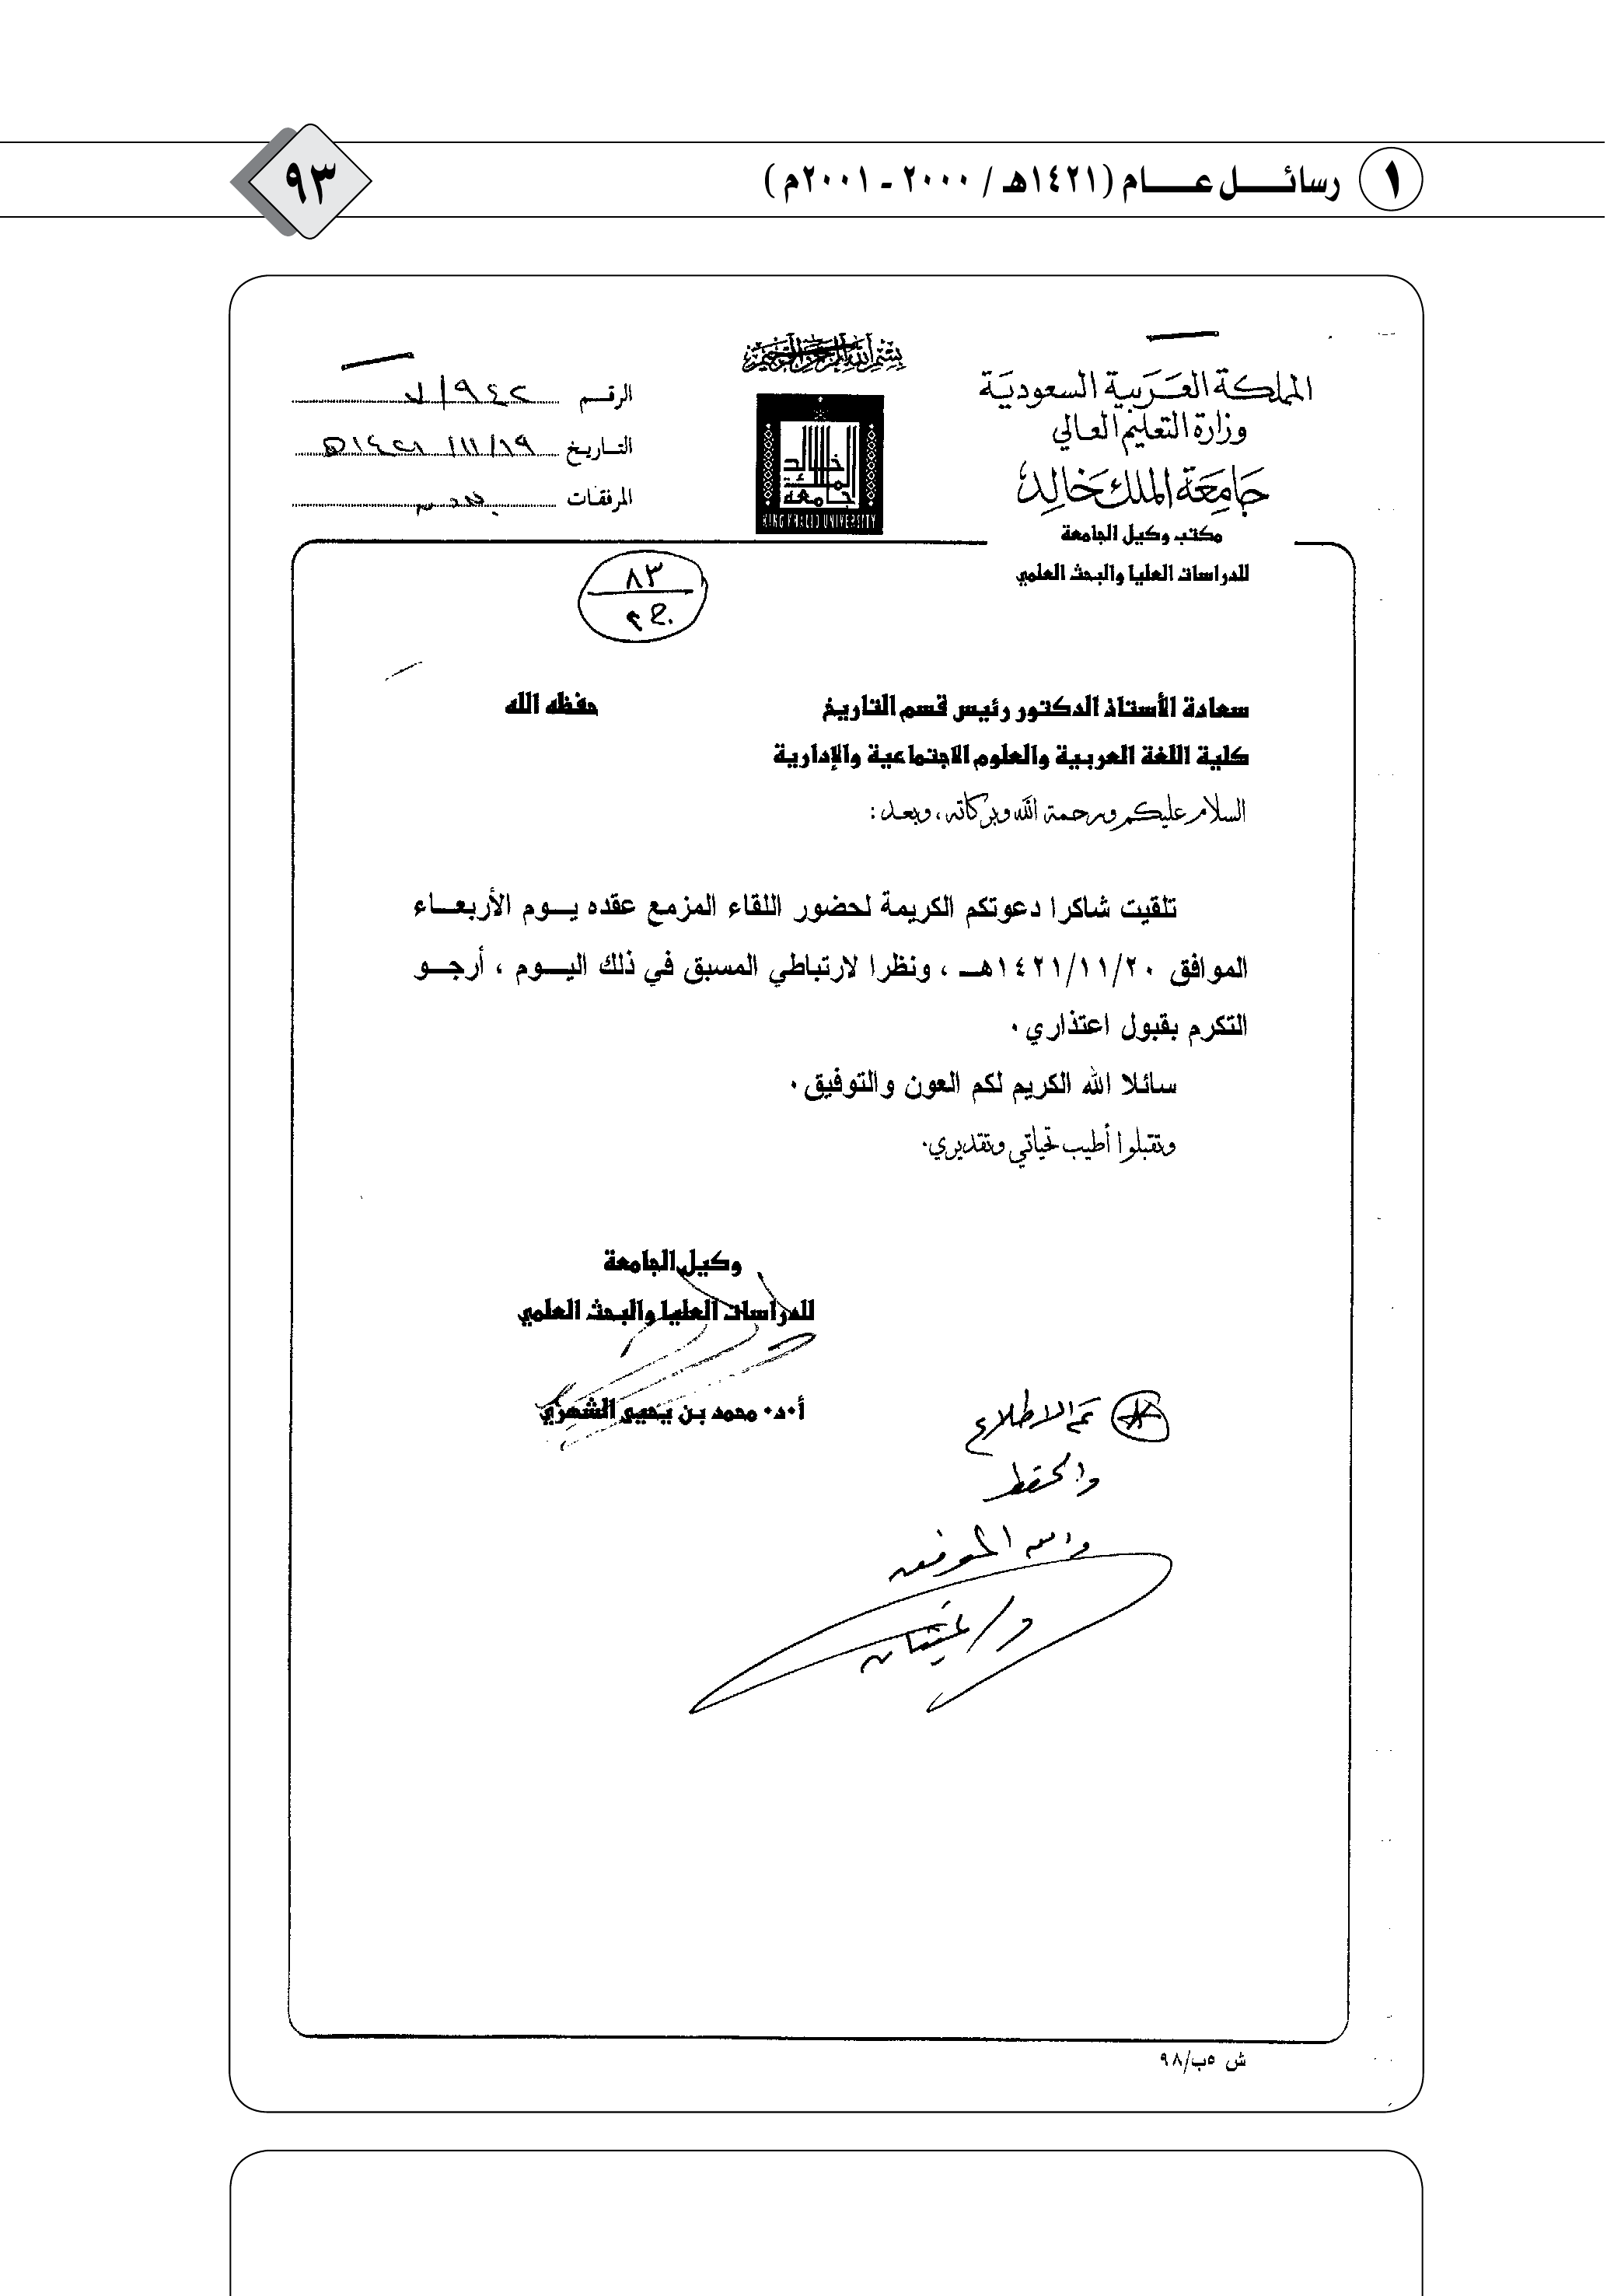 ١ رسائل عام (١٤٢١هـ / ٢٠٠٠ - ٢٠٠١م)
٩٣
بسم الله الرحمن الرحيم
المملكة العربية السعودية
وزارة التعليم العالي
جامعة الملك خالد
مكتب وكيل الجامعة
للدراسات العليا والبحث العلمي
جامعة الملك خالد
KING KHALID UNIVERSITY
الرقم ٩٤٢/
التاريخ ١٤٢١/١١/١٩هـ
المرفقات
٨٣
ج ٢
سعادة الأستاذ الدكتور رئيس قسم التاريخ حفظه الله
كلية اللغة العربية والعلوم الاجتماعية والإدارية
السلام عليكم ورحمة الله وبركاته ، وبعد :
تلقيت شاكرا دعوتكم الكريمة لحضور اللقاء المزمع عقده يوم الأربعاء
الموافق ١٤٢١/١١/٢٠هـ ، ونظرا لارتباطي المسبق في ذلك اليوم ، أرجو
التكرم بقبول اعتذاري ٠
سائلا الله الكريم لكم العون والتوفيق ٠
وتقبلوا أطيب تحياتي وتقديري ٠
وكيل الجامعة
للدراسات العليا والبحث العلمي
أ٠د٠ محمد بن يحيى الشهري
تم الاطلاع
والحفظ
والله الموفق
د/ غيثان
ش ٥ب/٩٨